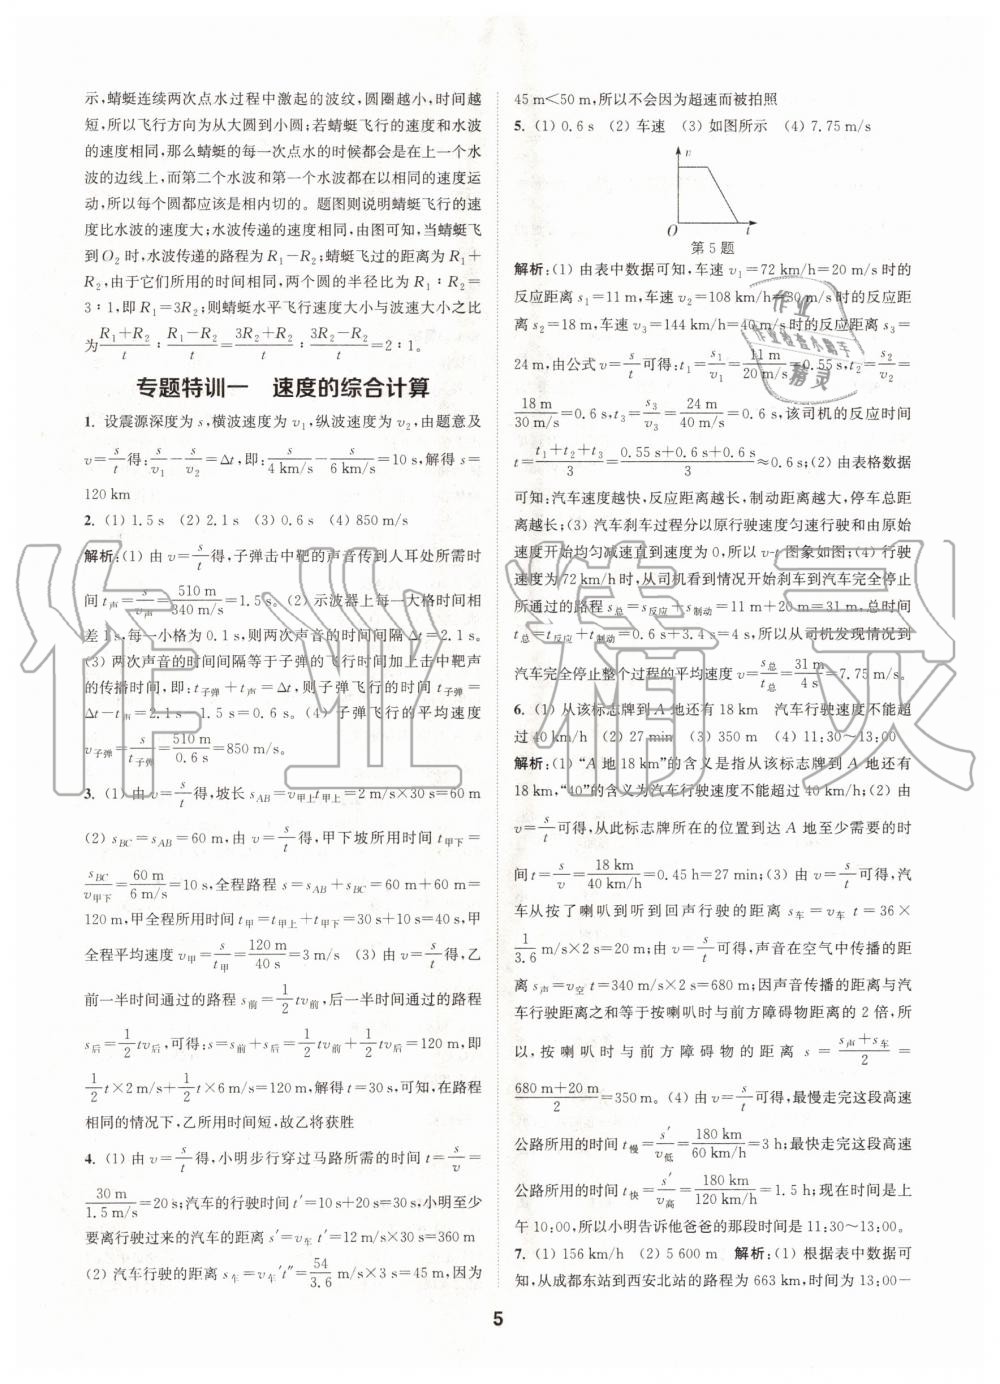 示,蜻蜓连续两次点水过程中激起的波纹,圆圈越小,时间越
短,所以飞行方向为从大圆到小圆;若蜻蜓飞行的速度和水波
的速度相同,那么蜻蜓的每一次点水的时候都会是在上一个水
波的边线上,而第二个水波和第一个水波都在以相同的速度运
动,所以每个圆都应该是相内切的。题图则说明蜻蜓飞行的速
度比水波的速度大;水波传递的速度相同,由图可知,当蜻蜓飞
到O₂时,水波传递的路程为R₁-R₂;蜻蜓飞过的距离为R₁+
R₂,由于它们所用的时间相同,两个圆的半径比为R₁:R₂=
3:1,即R₁=3R₂;则蜻蜓水平飞行速度大小与波速大小之比
为(R₁+R₂)/t:(R₁-R₂)/t=(3R₂+R₂)/t:(3R₂-R₂)/t=2:1。
专题特训一 速度的综合计算
1. 设震源深度为s,横波速度为v₁,纵波速度为v₂,由题意及
v=s/t得:s/v₁-s/v₂=Δt,即:s/(4 km/s)-s/(6 km/s)=10 s,解得s=
120 km
2. (1) 1.5 s (2) 2.1 s (3) 0.6 s (4) 850 m/s
解析:(1) 由v=s/t得,子弹击中靶的声音传到人耳处所需时
间t声=s/v声=510 m/(340 m/s)=1.5 s。(2) 示波器上每一大格时间相
差1 s,每一小格为0.1 s,则两次声音的时间间隔Δt=2.1 s。
(3) 两次声音的时间间隔等于子弹的飞行时间加上击中靶声
的传播时间,即:t子弹+t声=Δt,则子弹飞行的时间t子弹=
Δt-t声=2.1 s-1.5 s=0.6 s。(4) 子弹飞行的平均速度
v子弹=s/t子弹=510 m/0.6 s=850 m/s。
3. (1) 由v=s/t得,坡长s_AB=v甲上t甲上=2 m/s×30 s=60 m
(2) s_BC=s_AB=60 m,由v=s/t得,甲下坡所用时间t甲下=
s_BC/v甲下=60 m/(6 m/s)=10 s,全程路程s=s_AB+s_BC=60 m+60 m=
120 m,甲全程所用时间t甲=t甲上+t甲下=30 s+10 s=40 s,甲
全程平均速度v甲=s/t甲=120 m/40 s=3 m/s (3) 由v=s/t得,乙
前一半时间通过的路程s前=1/2 tv前,后一半时间通过的路程
s后=1/2 tv后,可得:s=s前+s后=1/2 tv前+1/2 tv后=120 m,即
1/2 t×2 m/s+1/2 t×6 m/s=120 m,解得t=30 s,可知,在路程
相同的情况下,乙所用时间短,故乙将获胜
4. (1) 由v=s/t得,小明步行穿过马路所需的时间t=s/v=
30 m/(1.5 m/s)=20 s;汽车的行驶时间t′=10 s+20 s=30 s,小明至少
要离行驶过来的汽车的距离s′=v车t′=12 m/s×30 s=360 m
(2) 汽车行驶的距离s车=v车′t″=54/3.6 m/s×3 s=45 m,因为
45 m<50 m,所以不会因为超速而被拍照
5. (1) 0.6 s (2) 车速 (3) 如图所示 (4) 7.75 m/s
v
O t
第5题
解析:(1) 由表中数据可知,车速v₁=72 km/h=20 m/s时的
反应距离s₁=11 m,车速v₂=108 km/h=30 m/s时的反应距
离s₂=18 m,车速v₃=144 km/h=40 m/s时的反应距离s₃=
24 m,由公式v=s/t可得:t₁=s₁/v₁=11 m/(20 m/s)=0.55 s,t₂=s₂/v₂=
18 m/(30 m/s)=0.6 s,t₃=s₃/v₃=24 m/(40 m/s)=0.6 s,该司机的反应时间
t=(t₁+t₂+t₃)/3=(0.55 s+0.6 s+0.6 s)/3≈0.6 s;(2) 由表格数据
可知:汽车速度越快,反应距离越长,制动距离越大,停车总距
离越长;(3) 汽车刹车过程分以原行驶速度匀速行驶和由原始
速度开始均匀减速直到速度为0,所以v-t图象如图;(4) 行驶
速度为72 km/h时,从司机看到情况开始刹车到汽车完全停止
所通过的路程s总=s反应+s制动=11 m+20 m=31 m,总时间
t总=t反应+t制动=0.6 s+3.4 s=4 s,所以从司机发现情况到
汽车完全停止整个过程的平均速度v=s总/t总=31 m/4 s=7.75 m/s。
6. (1) 从该标志牌到A地还有18 km 汽车行驶速度不能超
过40 km/h (2) 27 min (3) 350 m (4) 11:30~13:00
解析:(1) “A地18 km”的含义是指从该标志牌到A地还有
18 km,“40”的含义为汽车行驶速度不能超过40 km/h;(2) 由
v=s/t可得,从此标志牌所在的位置到达A地至少需要的时
间t=s/v=18 km/(40 km/h)=0.45 h=27 min;(3) 由v=s/t可得,汽
车从按了喇叭到听到回声行驶的距离s车=v车t=36×
1/3.6 m/s×2 s=20 m;由v=s/t可得,声音在空气中传播的距
离s声=v空t=340 m/s×2 s=680 m;因声音传播的距离与汽
车行驶距离之和等于按喇叭时与前方障碍物距离的2倍,所
以,按喇叭时与前方障碍物的距离s=(s声+s车)/2=
(680 m+20 m)/2=350 m。(4) 由v=s/t可得,最慢走完这段高速
公路所用的时间t慢=s′/v低=180 km/(60 km/h)=3 h;最快走完这段高速
公路所用的时间t快=s′/v高=180 km/(120 km/h)=1.5 h;现在时间是上
午10:00,所以小明告诉他爸爸的那段时间是11:30~13:00。
7. (1) 156 km/h (2) 5 600 m 解析:(1) 根据表中数据可
知,从成都东站到西安北站的路程为663 km,时间为13:00-
5
作业精灵
作业
作业检查小帮手
精灵